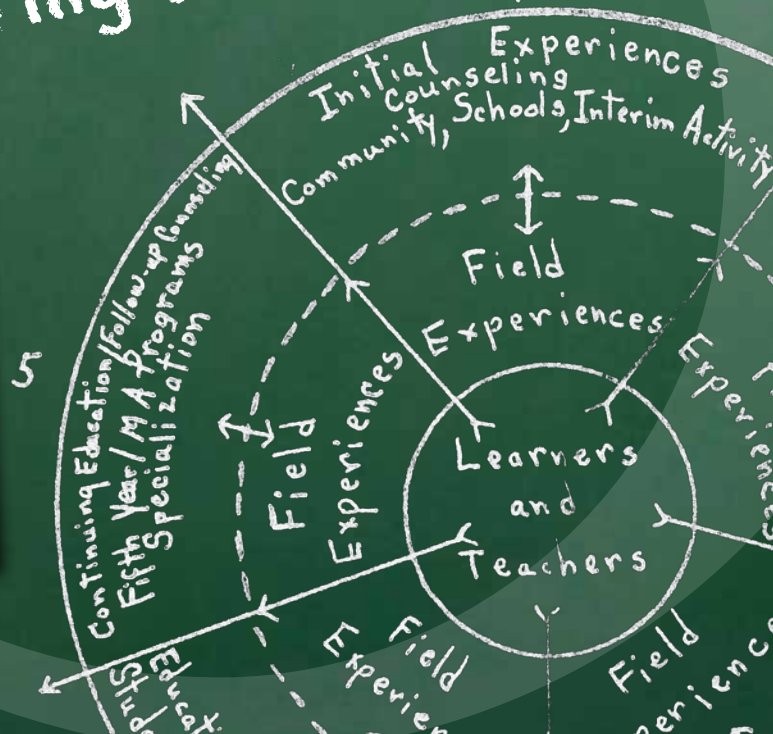 Initial Experiences
Counseling
Community, Schools, Interim Activity
Field
Experiences
Learners
and
Teachers
5
Continuing Education/Follow-up Counseling
Fifth Year/MA Programs
Specialization
Field
Experiences
Field
Field